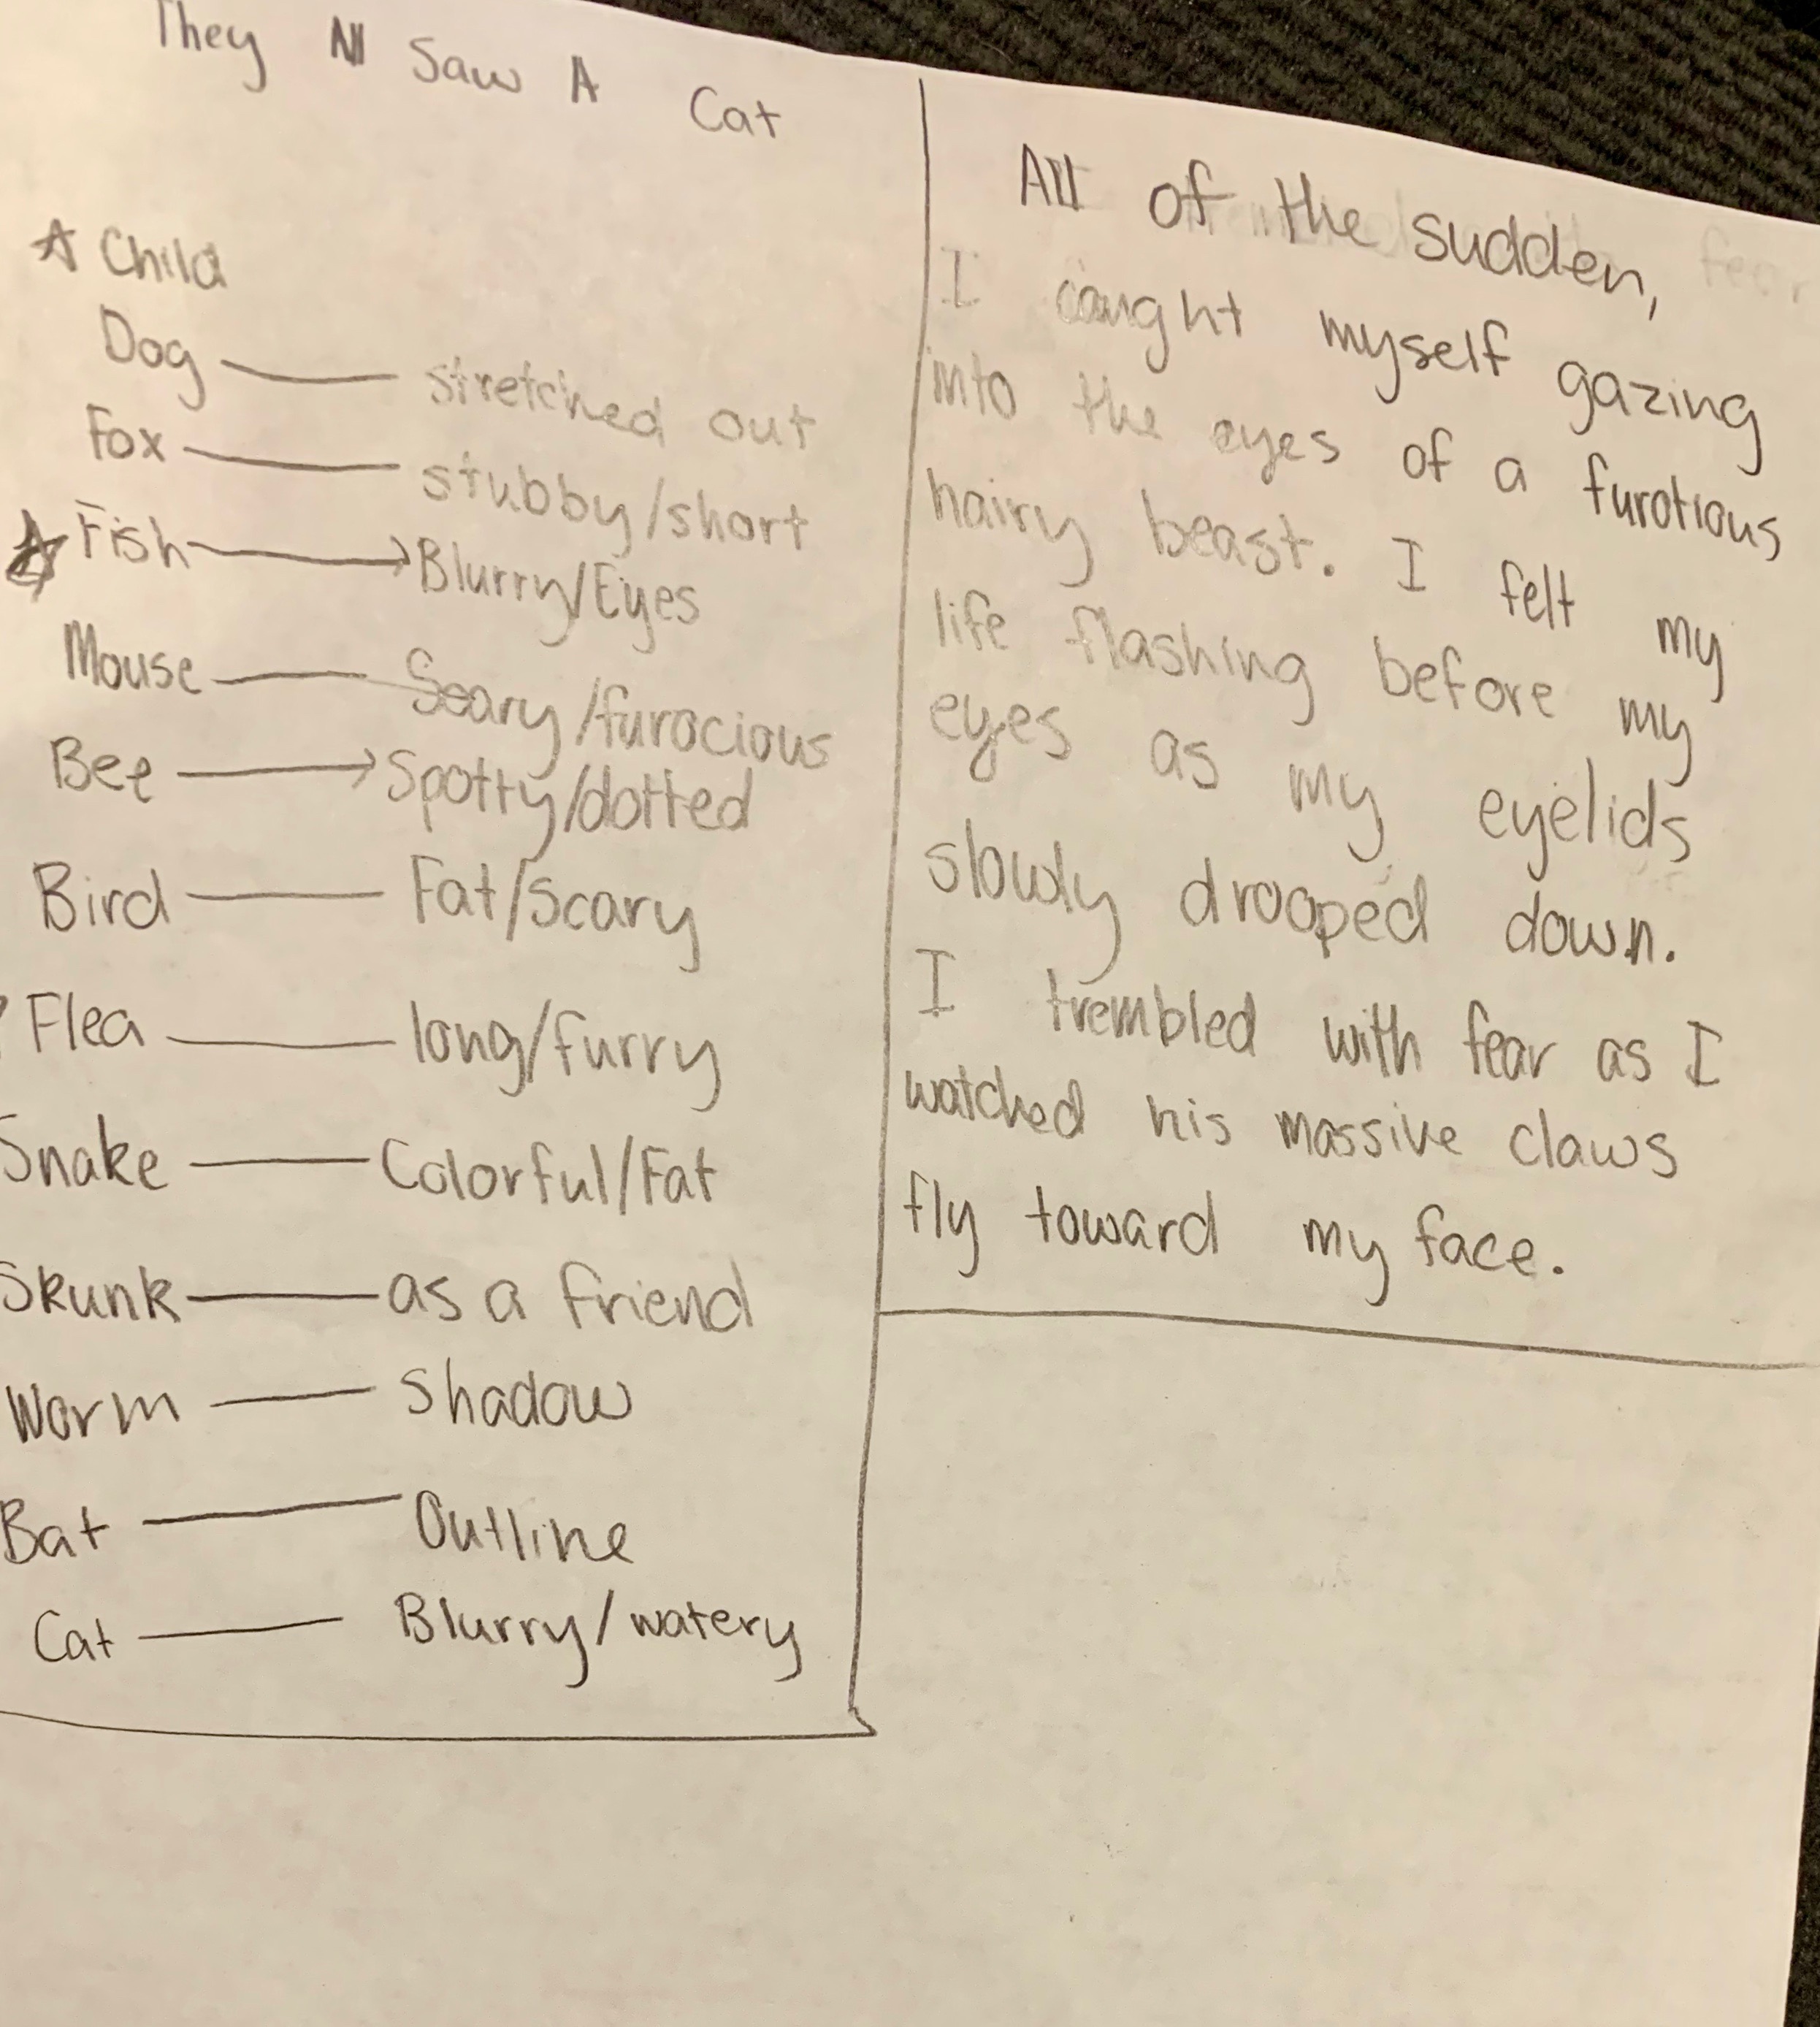 They All Saw A Cat
Child
Dog — stretched out
Fox — stubby/short
Fish → Blurry/Eyes
Mouse — Scary/furocious
Bee → Spotty/dotted
Bird — Fat/Scary
Flea — long/furry
Snake — Colorful/Fat
Skunk — as a friend
Worm — Shadow
Bat — Outline
Cat — Blurry/watery
All of the sudden,
I caught myself gazing
into the eyes of a furotious
hairy beast. I felt my
life flashing before my
eyes as my eyelids
slowly drooped down.
I trembled with fear as I
watched his massive claws
fly toward my face.